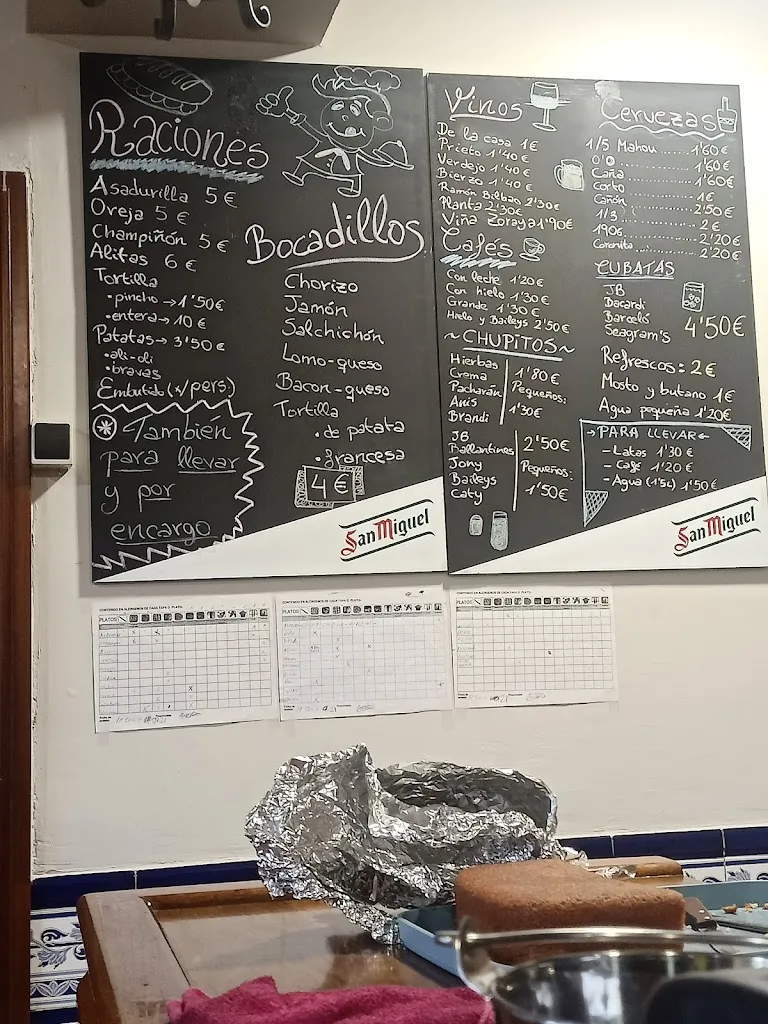 Raciones
Asadurilla 5€
Oreja 5€
Champiñón 5€
Alitas 6€
Tortilla
• pincho → 1'50€
• entera → 10€
Patatas → 3'50€
• ali-oli
• bravas
Embutido (x/pers.)
También
para llevar
y por
encargo
Bocadillos
Chorizo
Jamón
Salchichón
Lomo-queso
Bacon-queso
Tortilla
• de patata
• francesa
4€
San Miguel
Vinos
De la casa 1€
Prieto 1'40€
Verdejo 1'40€
Bierzo 1'40€
Ramón Bilbao 2'30€
Planta 2'30€
Viña Zoraya 1'90€
Cafés
Con leche 1'20€
Con hielo 1'30€
Grande 1'30€
Hielo y Baileys 2'50€
~CHUPITOS~
Hierbas
Crema
Pacharán
Anís
Brandi
1'80€
Pequeños:
1'30€
JB
Ballantines
Jony
Baileys
Caty
2'50€
Pequeños:
1'50€
Cervezas
1/5 Mahou ........ 1'60€
0'0 ........ 1'60€
Caña ........ 1'60€
Corto ........ 1€
Cañón ........ 2'50€
1/3 ........ 2€
1906 ........ 2'20€
Coronita ........ 2'20€
CUBATAS
JB
Bacardi
Barceló
Seagram's
4'50€
Refrescos: 2€
Mosto y butano 1€
Agua pequeña 1'20€
→PARA LLEVAR←
- Latas 1'30€
- Café 1'20€
- Agua (1'5L) 1'50€
San Miguel
CONTENIDO EN ALÉRGENOS DE CADA TAPA O PLATO:
PLATOS
CONTENIDO EN ALÉRGENOS DE CADA TAPA O PLATO:
PLATOS
CONTENIDO EN ALÉRGENOS DE CADA TAPA O PLATO:
PLATOS